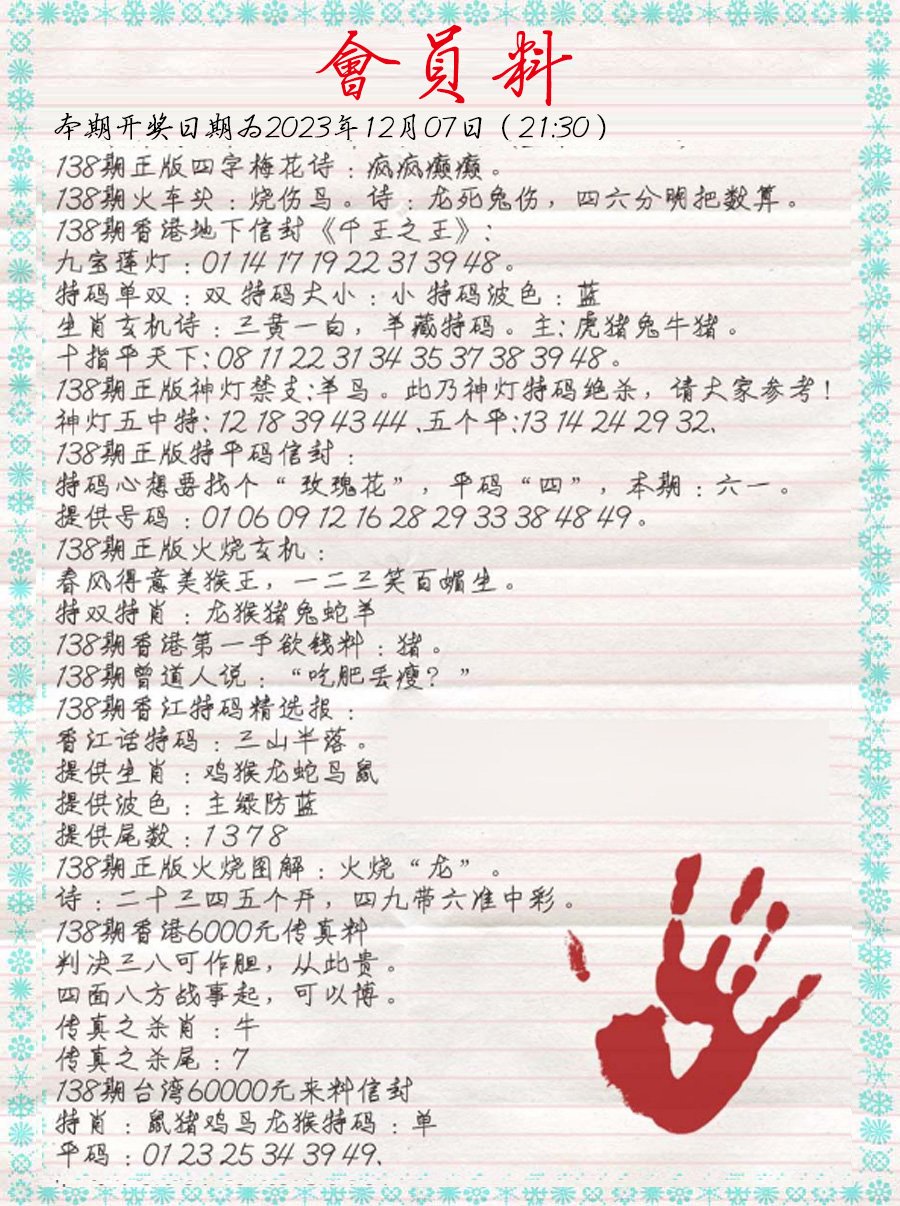 會員料
本期开奖日期为2023年12月07日（21:30）
138期正版四字梅花诗：疯疯癫癫。
138期火车头：烧伤鸟。诗：龙死兔伤，四六分明把数算。
138期香港地下信封《千王之王》：
九宝莲灯：01 14 17 19 22 31 39 48。
特码单双：双 特码大小：小 特码波色：蓝
生肖玄机诗：三黄一白，羊藏特码。主：虎猪兔牛猪。
十指平天下：08 11 22 31 34 35 37 38 39 48。
138期正版神灯禁支：羊鸟。此乃神灯特码绝杀，请大家参考！
神灯五中特：12 18 39 43 44、五个平：13 14 24 29 32、
138期正版特平码信封：
特码心想要找个“玫瑰花”，平码“四”，本期：六一。
提供号码：01 06 09 12 16 28 29 33 38 48 49。
138期正版火烧玄机：
春风得意美猴王，一二三笑百媚生。
特双特肖：龙猴猪兔蛇羊
138期香港第一手欲钱料：猪。
138期曾道人说：“吃肥丢瘦？”
138期香江特码精选报：
香江话特码：三山半落。
提供生肖：鸡猴龙蛇马鼠
提供波色：主绿防蓝
提供尾数：1 3 7 8
138期正版火烧图解：火烧“龙”。
诗：二十三四五个开，四九带六准中彩。
138期香港6000元传真料
判决三八可作胆，从此贵。
四面八方战事起，可以博。
传真之杀肖：牛
传真之杀尾：7
138期台湾60000元来料信封
特肖：鼠猪鸡马龙猴特码：单
平码：01 23 25 34 39 49、